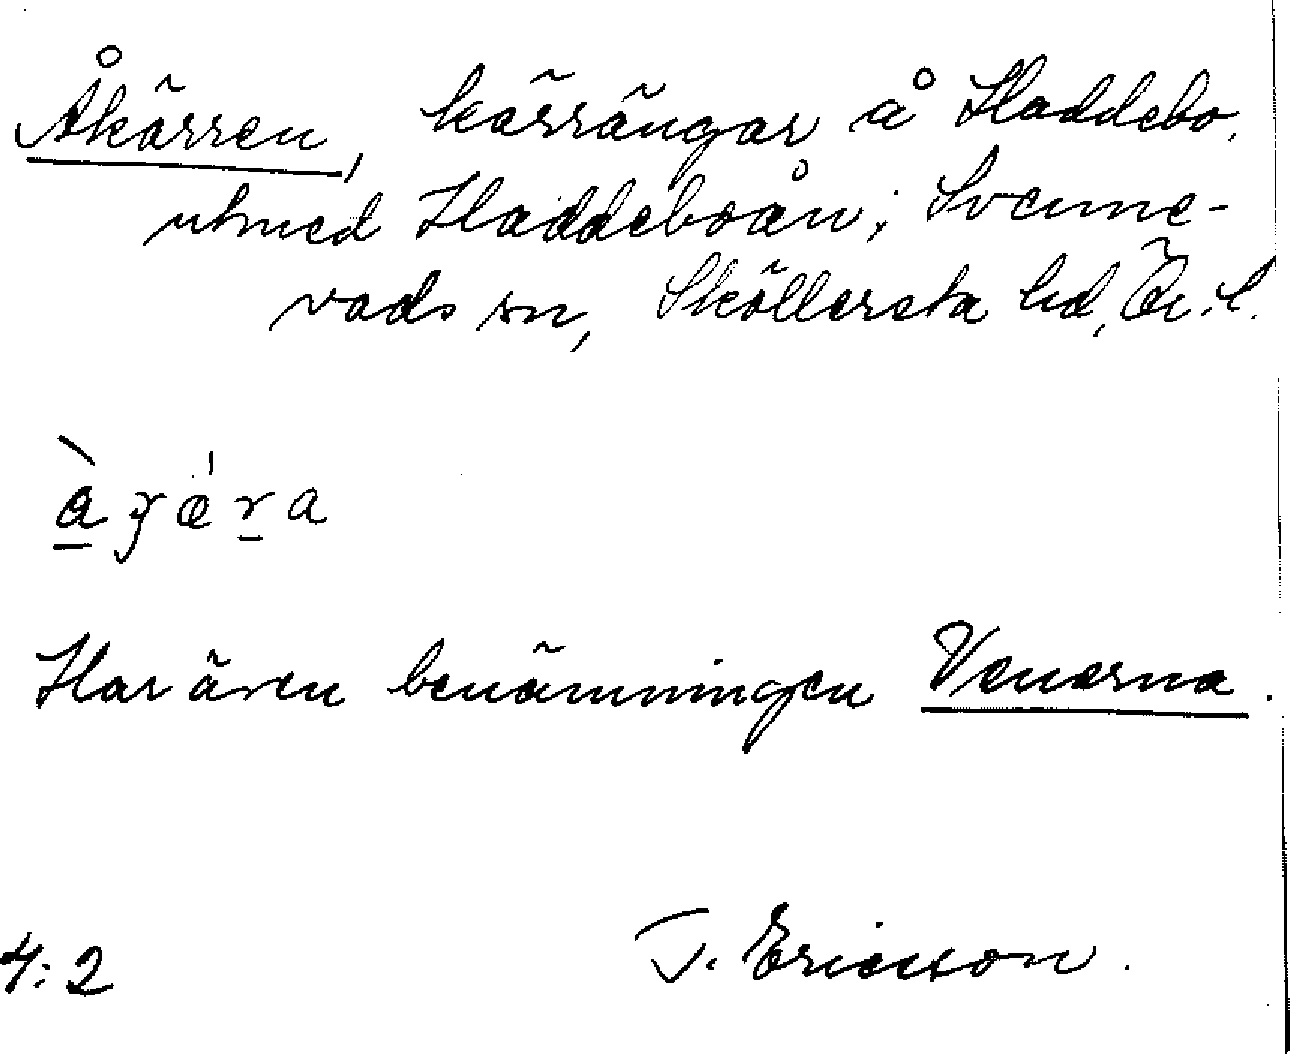 Åkärren, kärrängar å Haddebo,
utmed Haddeboån; Svenne-
vads sn, Sköllersta hd, Ör. l.
Har även benämningen Venerna.
4:2 T. Ericsson.